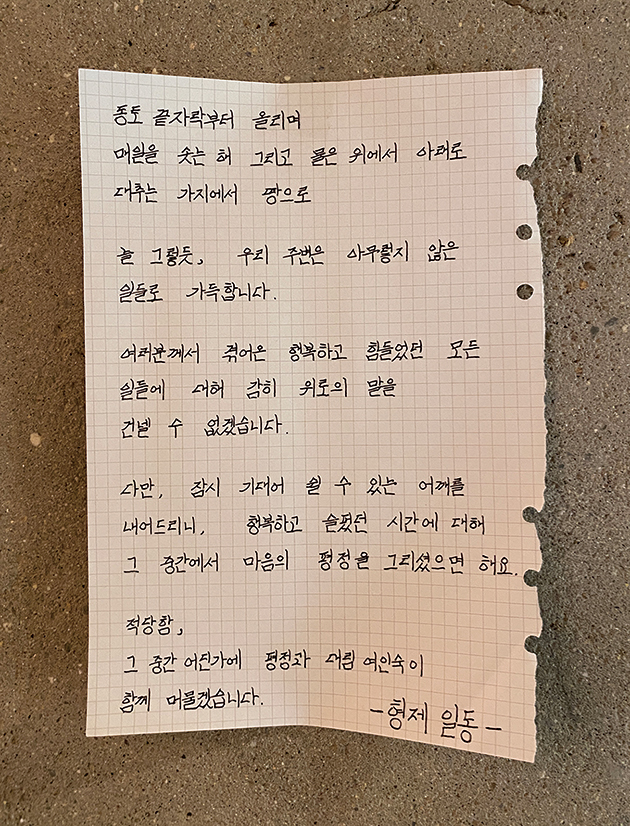 종도 끝자락부터 올리며
매일을 솟는 해 그리고 물은 위에서 아래로
대추는 가지에서 땅으로
늘 그렇듯, 우리 주변은 아무렇지 않은
일들로 가득합니다.
여러분께서 겪어온 행복하고 힘들었던 모든
일들에 대해 감히 위로의 말을
건넬 수 없겠습니다.
다만, 잠시 기대어 쉴 수 있는 어깨를
내어드리니, 행복하고 슬펐던 시간에 대해
그 중간에서 마음의 평정을 그리셨으면 해요.
적당함,
그 중간 어딘가에 평정과 대림여인숙이
함께 머물겠습니다.
-형제 일동-